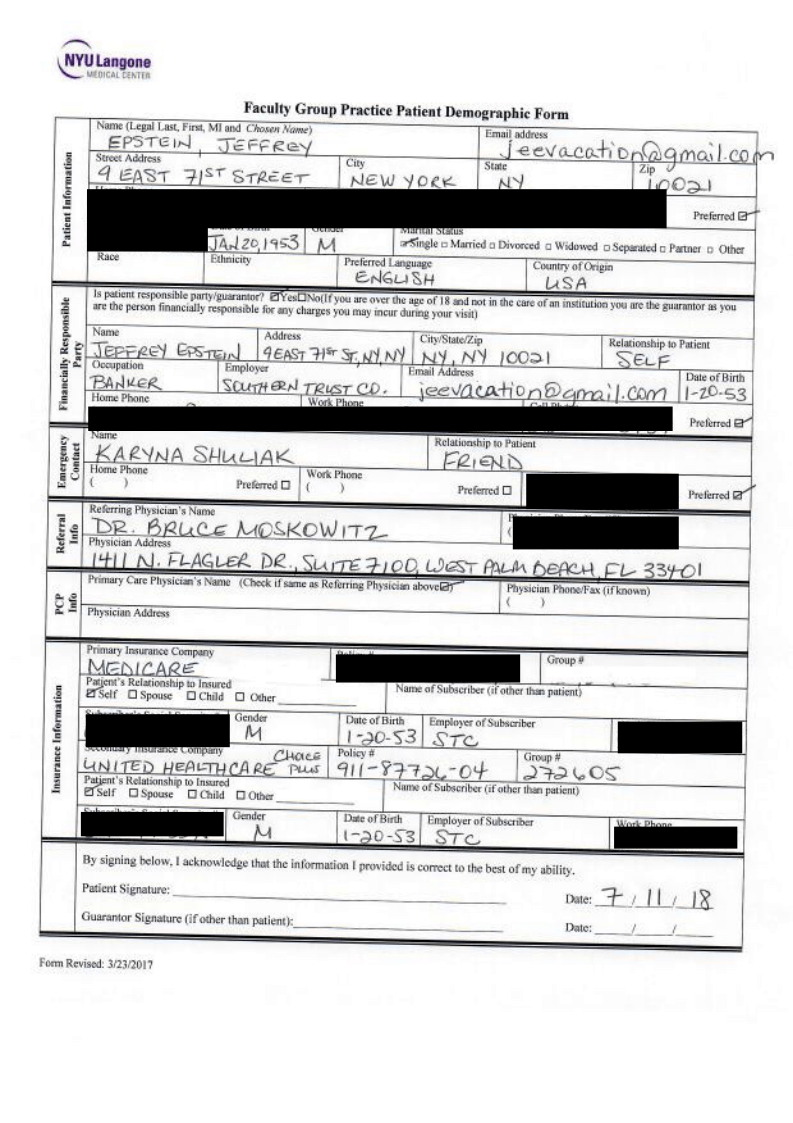 NYU Langone
MEDICAL CENTER
Faculty Group Practice Patient Demographic Form
Patient Information
Name (Legal Last, First, MI and Chosen Name)
EPSTEIN, JEFFREY
Email address
jeevacation@gmail.com
Street Address
9 EAST 71ST STREET
City
NEW YORK
State
NY
Zip
10021
Preferred
JAN 20, 1953
Gender
M
Marital Status
Single Married Divorced Widowed Separated Partner Other
Race
Ethnicity
Preferred Language
ENGLISH
Country of Origin
USA
Financially Responsible Party
Is patient responsible party/guarantor? Yes No(If you are over the age of 18 and not in the care of an institution you are the guarantor as you
are the person financially responsible for any charges you may incur during your visit)
Name
JEFFREY EPSTEIN
Address
9 EAST 71ST ST, NY, NY
City/State/Zip
NY, NY 10021
Relationship to Patient
SELF
Occupation
BANKER
Employer
SOUTHERN TRUST CO.
Email Address
jeevacation@gmail.com
Date of Birth
1-20-53
Home Phone
Work Phone
Preferred
Emergency Contact
Name
KARYNA SHULIAK
Relationship to Patient
FRIEND
Home Phone
( )
Preferred
Work Phone
( )
Preferred
Preferred
Referral Info
Referring Physician's Name
DR. BRUCE MOSKOWITZ
Physician Address
1411 N. FLAGLER DR., SUITE 7100, WEST PALM BEACH, FL 33401
PCP Info
Primary Care Physician's Name (Check if same as Referring Physician above )
Physician Phone/Fax (if known)
( )
Physician Address
Insurance Information
Primary Insurance Company
MEDICARE
Policy #
Group #
Patient's Relationship to Insured
Self Spouse Child Other
Name of Subscriber (if other than patient)
Gender
M
Date of Birth
1-20-53
Employer of Subscriber
STC
Secondary Insurance Company
UNITED HEALTHCARE CHOICE PLUS
Policy #
911-87726-04
Group #
272605
Patient's Relationship to Insured
Self Spouse Child Other
Name of Subscriber (if other than patient)
Gender
M
Date of Birth
1-20-53
Employer of Subscriber
STC
Work Phone
By signing below, I acknowledge that the information I provided is correct to the best of my ability.
Patient Signature:
Date: 7 / 11 / 18
Guarantor Signature (if other than patient):
Date: / /
Form Revised: 3/23/2017